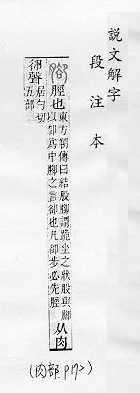 說文解字
段注本
脛也
東方朔傳曰結股腳謂跪坐之狀股與腳
以厀爲中腳之言卻也凡卻步必先脛
从肉
卻聲
居勺切
五部